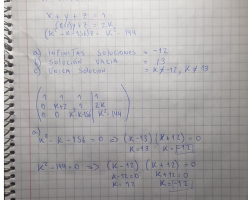 x + y + z = 1
(k+2)y = 2k
(k²-k-156)z = k²-144
a) Infinitas soluciones = -12
b) Solucion vacia = 13
c) Unica solucion = k≠-12, k≠13
1 1 1 | 1
0 k+2 1 | 2k
0 0 k²-k-156 | k²-144
a)
k²-k-156=0 => (k-13)(k+12)=0
k=13 k=-12
k²-144=0 => (k-12)(k+12)=0
k-12=0 k+12=0
k=12 k=-12